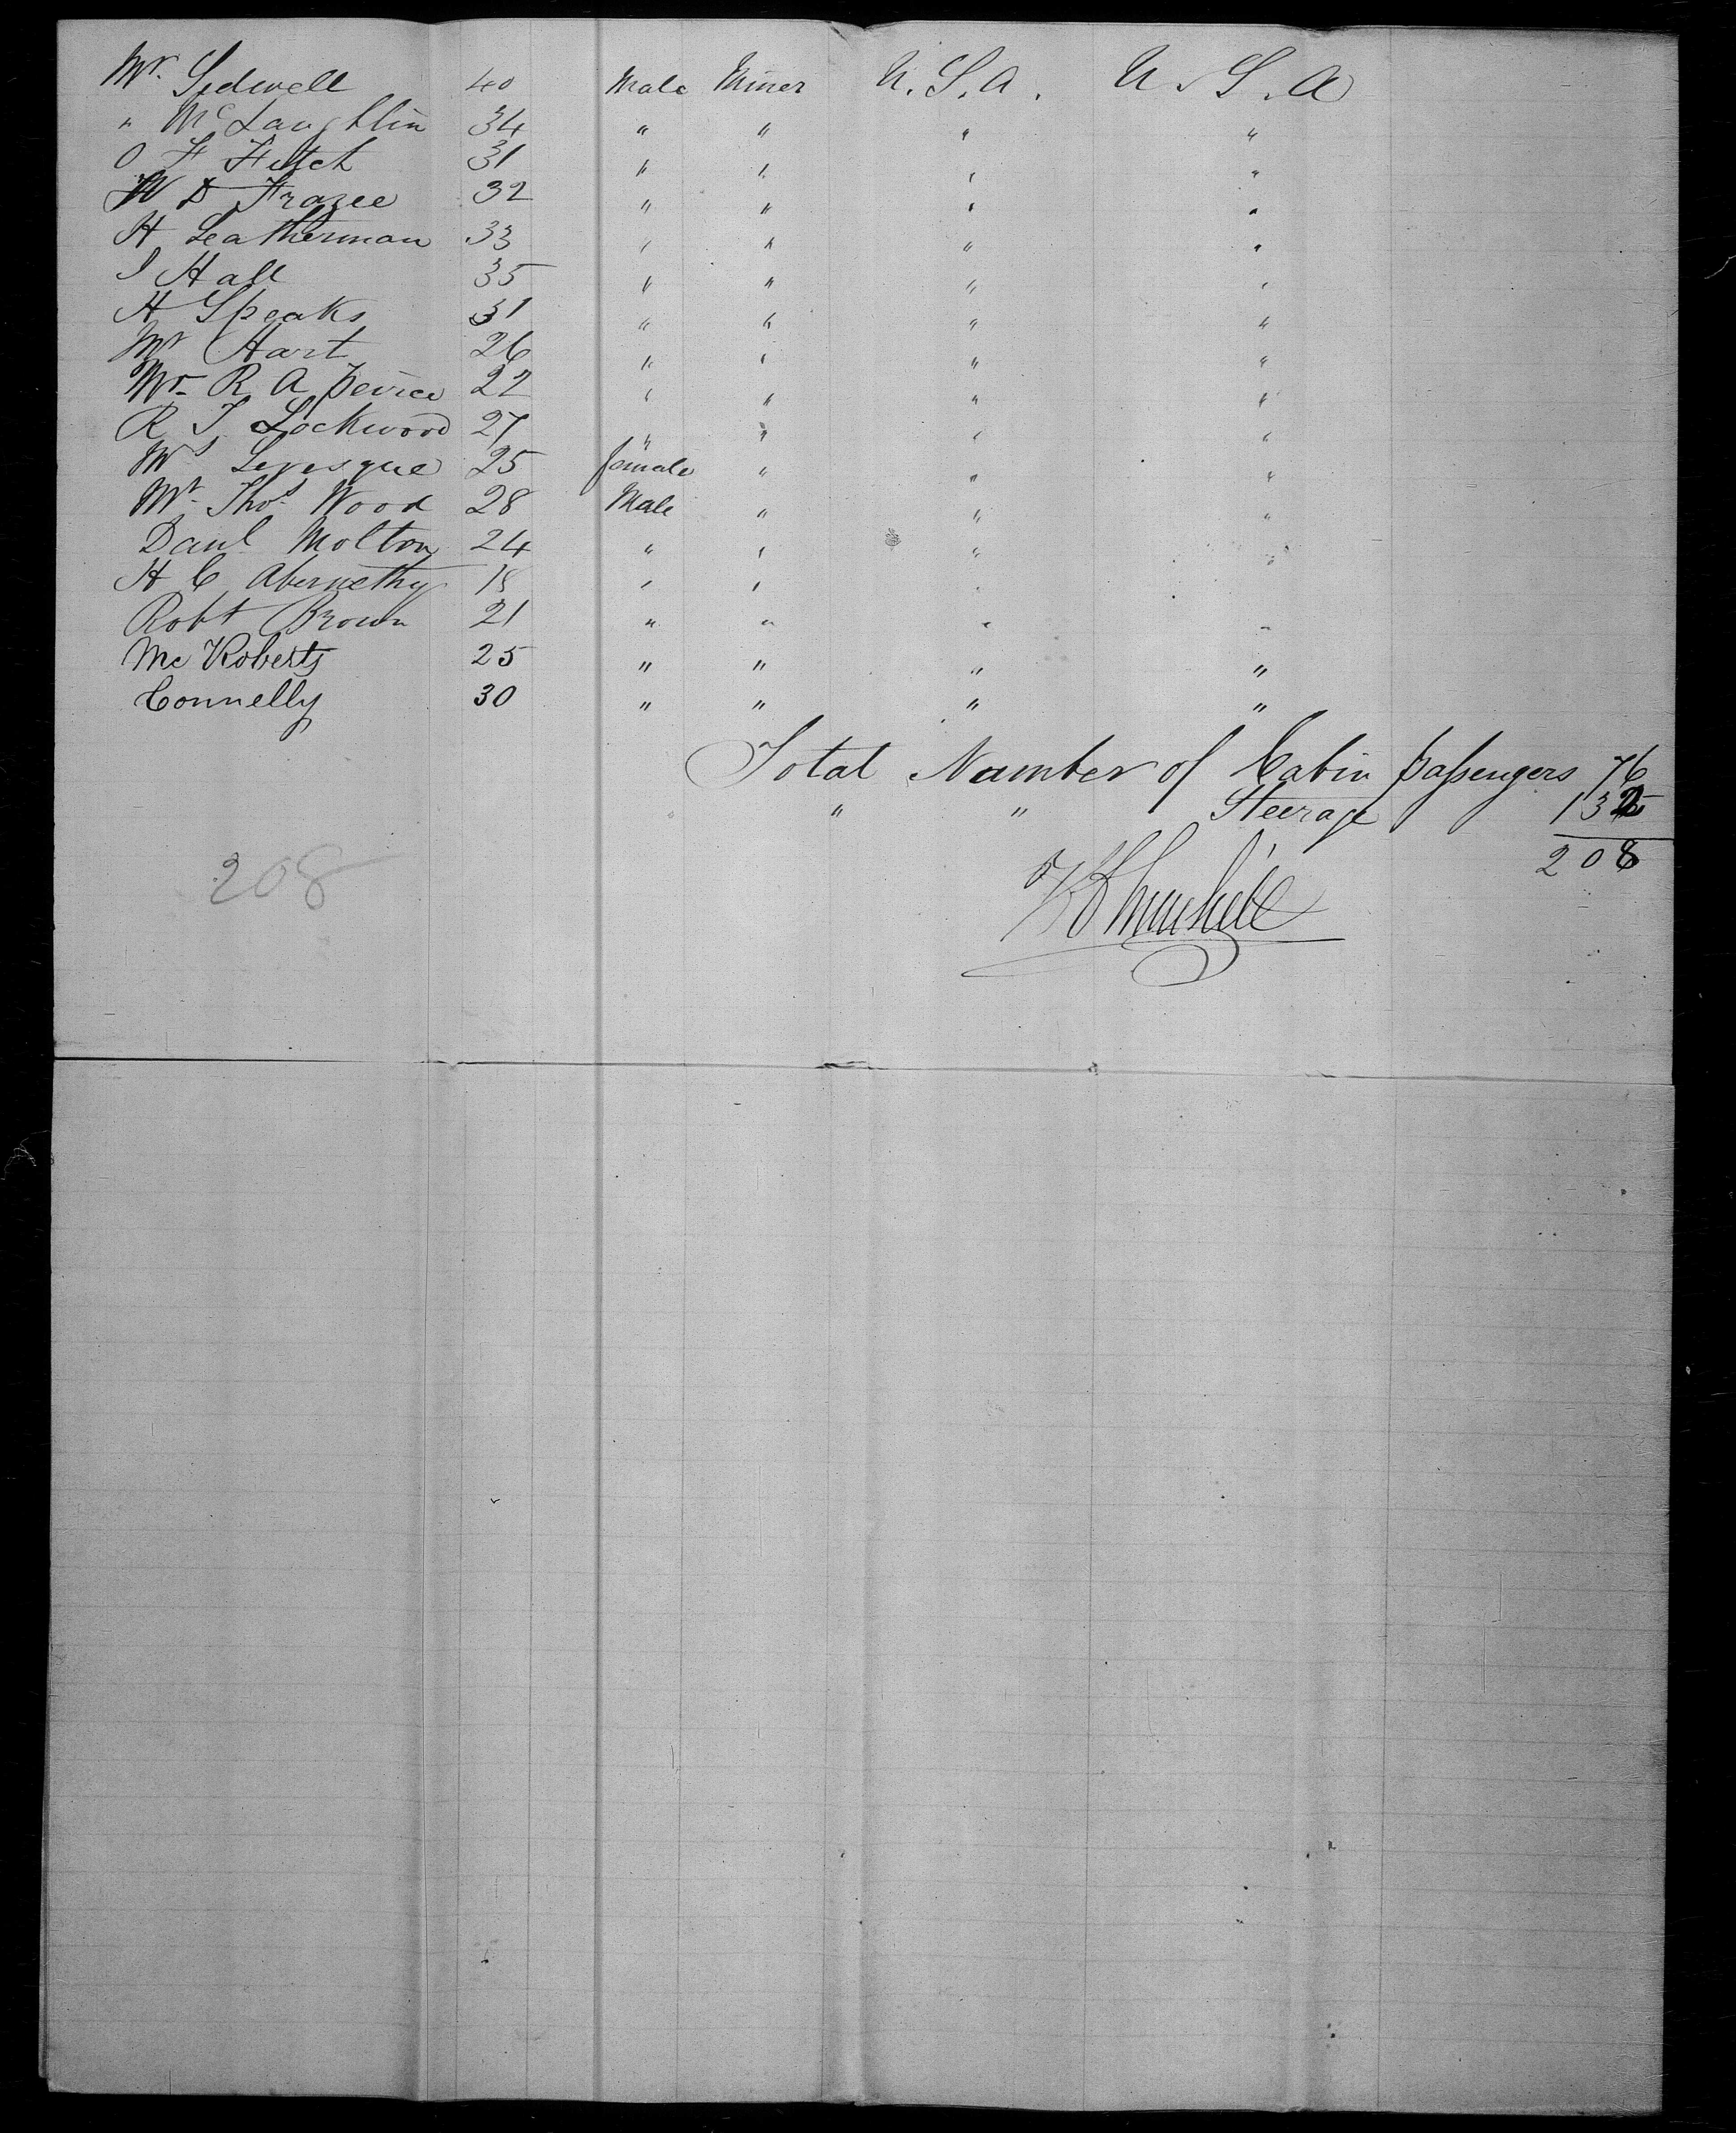 Mr. Sidwell 40 Male Miner U.S.A. U.S.A
" McLaughlin 34 " " " "
O F Fitch 31 " " " "
W D Frazee 32 " " " "
H Leatherman 33 " " " "
I Hall 35 " " " "
H Speaks 31 " " " "
Mr Hart 26 " " " "
Mr. R A peirce 22 " " " "
R T Lockwood 27 " " " "
Ms Levesque 25 female " " "
Mr. Thos Wood 28 Male " " "
Danl Molton 24 " " " "
H C Abernethy 18 " " " "
Robt Brown 21 " " " "
Mc Roberts 25 " " " "
Connelly 30 " " " "
Total Number of Cabin passengers 76
" " Steerage 132
208
208